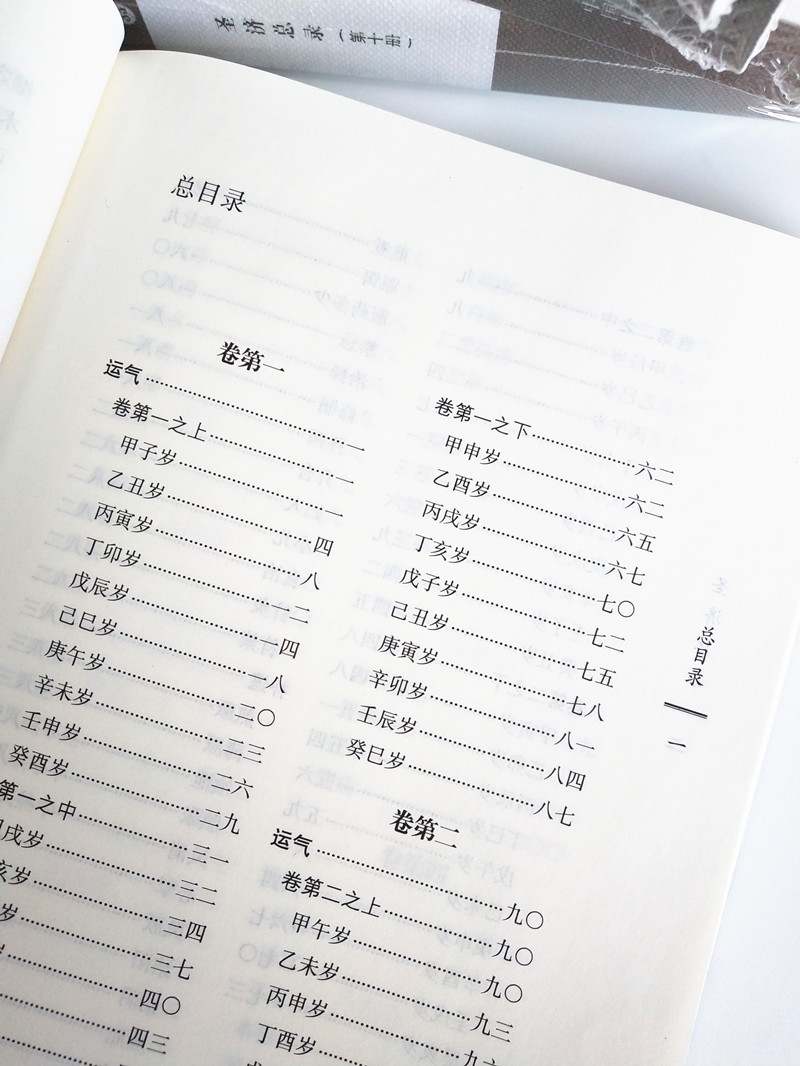 圣济总录（第十册）
总目录
卷第一
运气……一
卷第一之上……一
甲子岁……一
乙丑岁……四
丙寅岁……八
丁卯岁……一二
戊辰岁……一四
己巳岁……一八
庚午岁……二〇
辛未岁……二三
壬申岁……二六
癸酉岁……二九
第一之中……三一
戌岁……三二
亥岁……三四
岁……三七
……四〇
……四三
卷第一之下……六二
甲申岁……六二
乙酉岁……六五
丙戌岁……六七
丁亥岁……七〇
戊子岁……七二
己丑岁……七五
庚寅岁……七八
辛卯岁……八一
壬辰岁……八四
癸巳岁……八七
卷第二
运气……九〇
卷第二之上……九〇
甲午岁……九〇
乙未岁……九三
丙申岁……九六
丁酉岁……
总目录
一